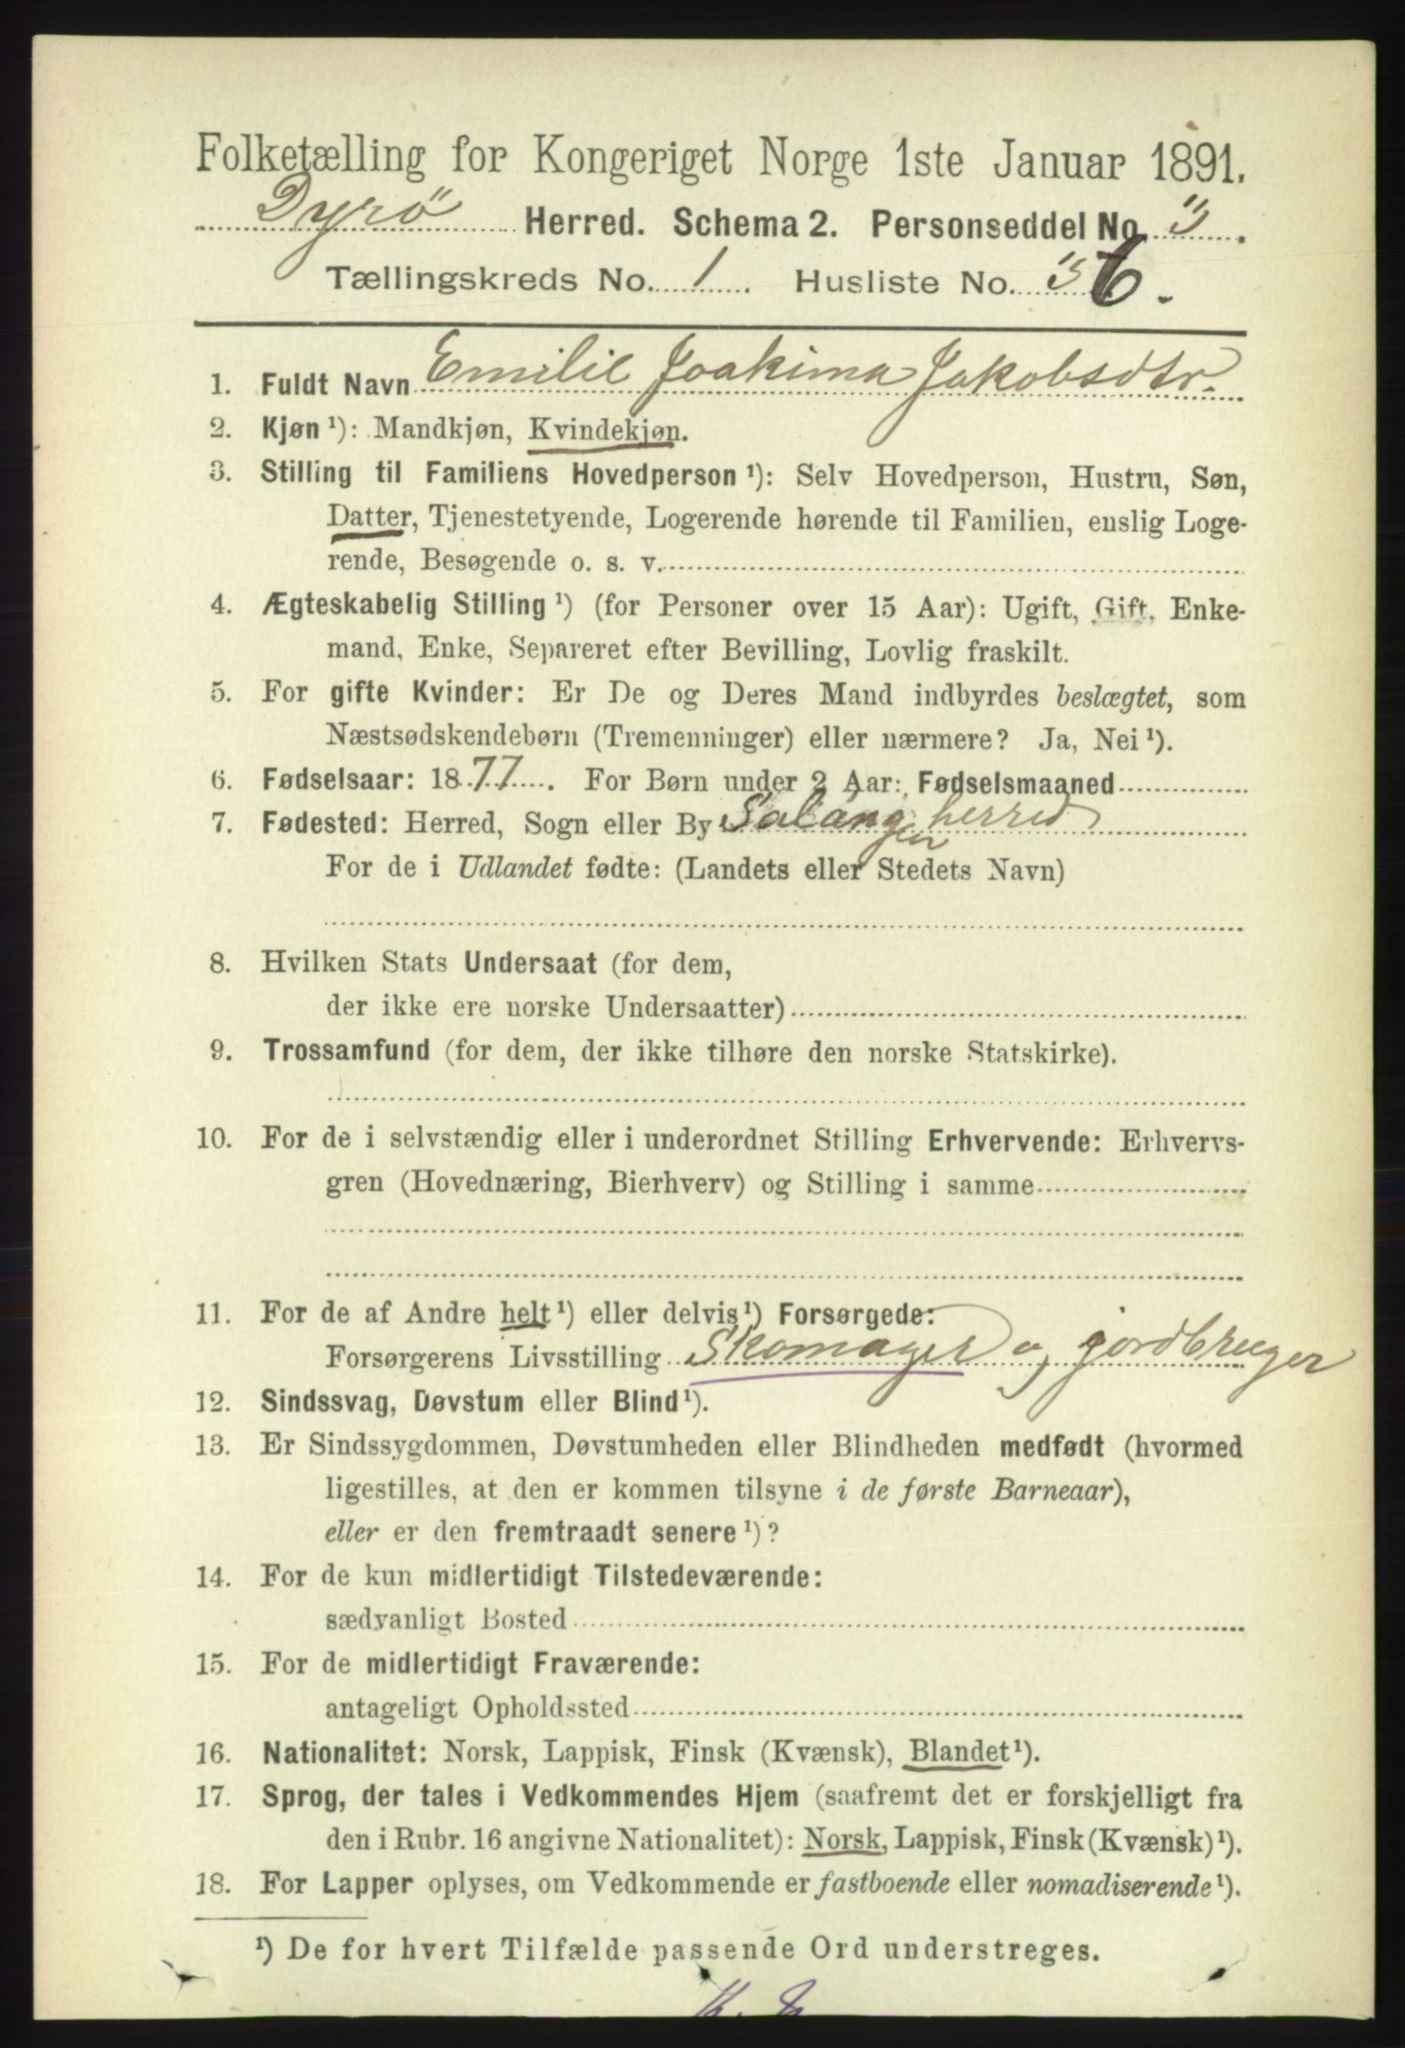 Folketælling for Kongeriget Norge 1ste Januar 1891.
Dyrö Herred. Schema 2. Personseddel No. 3.
Tællingskreds No. 1. Husliste No. 6.
1. Fuldt Navn Emilie Joakima Jakobsdtr.
2. Kjøn ¹): Mandkjøn, Kvindekjøn.
3. Stilling til Familiens Hovedperson ¹): Selv Hovedperson, Hustru, Søn,
Datter, Tjenestetyende, Logerende hørende til Familien, enslig Loge-
rende, Besøgende o. s. v.
4. Ægteskabelig Stilling ¹) (for Personer over 15 Aar): Ugift, Gift, Enke-
mand, Enke, Separeret efter Bevilling, Lovlig fraskilt.
5. For gifte Kvinder: Er De og Deres Mand indbyrdes beslægtet, som
Næstsødskendebørn (Tremenninger) eller nærmere? Ja, Nei ¹).
6. Fødselsaar: 1877. For Børn under 2 Aar: Fødselsmaaned
7. Fødested: Herred, Sogn eller By Salangen herred
For de i Udlandet fødte: (Landets eller Stedets Navn)
8. Hvilken Stats Undersaat (for dem,
der ikke ere norske Undersaatter)
9. Trossamfund (for dem, der ikke tilhøre den norske Statskirke).
10. For de i selvstændig eller i underordnet Stilling Erhvervende: Erhvervs-
gren (Hovednæring, Bierhverv) og Stilling i samme
11. For de af Andre helt ¹) eller delvis ¹) Forsørgede:
Forsørgerens Livsstilling Skomager og jordbruger
12. Sindssvag, Døvstum eller Blind ¹).
13. Er Sindssygdommen, Døvstumheden eller Blindheden medfødt (hvormed
ligestilles, at den er kommen tilsyne i de første Barneaar),
eller er den fremtraadt senere ¹)?
14. For de kun midlertidigt Tilstedeværende:
sædvanligt Bosted
15. For de midlertidigt Fraværende:
antageligt Opholdssted
16. Nationalitet: Norsk, Lappisk, Finsk (Kvænsk), Blandet ¹).
17. Sprog, der tales i Vedkommendes Hjem (saafremt det er forskjelligt fra
den i Rubr. 16 angivne Nationalitet): Norsk, Lappisk, Finsk (Kvænsk) ¹).
18. For Lapper oplyses, om Vedkommende er fastboende eller nomadiserende ¹).
¹) De for hvert Tilfælde passende Ord understreges.